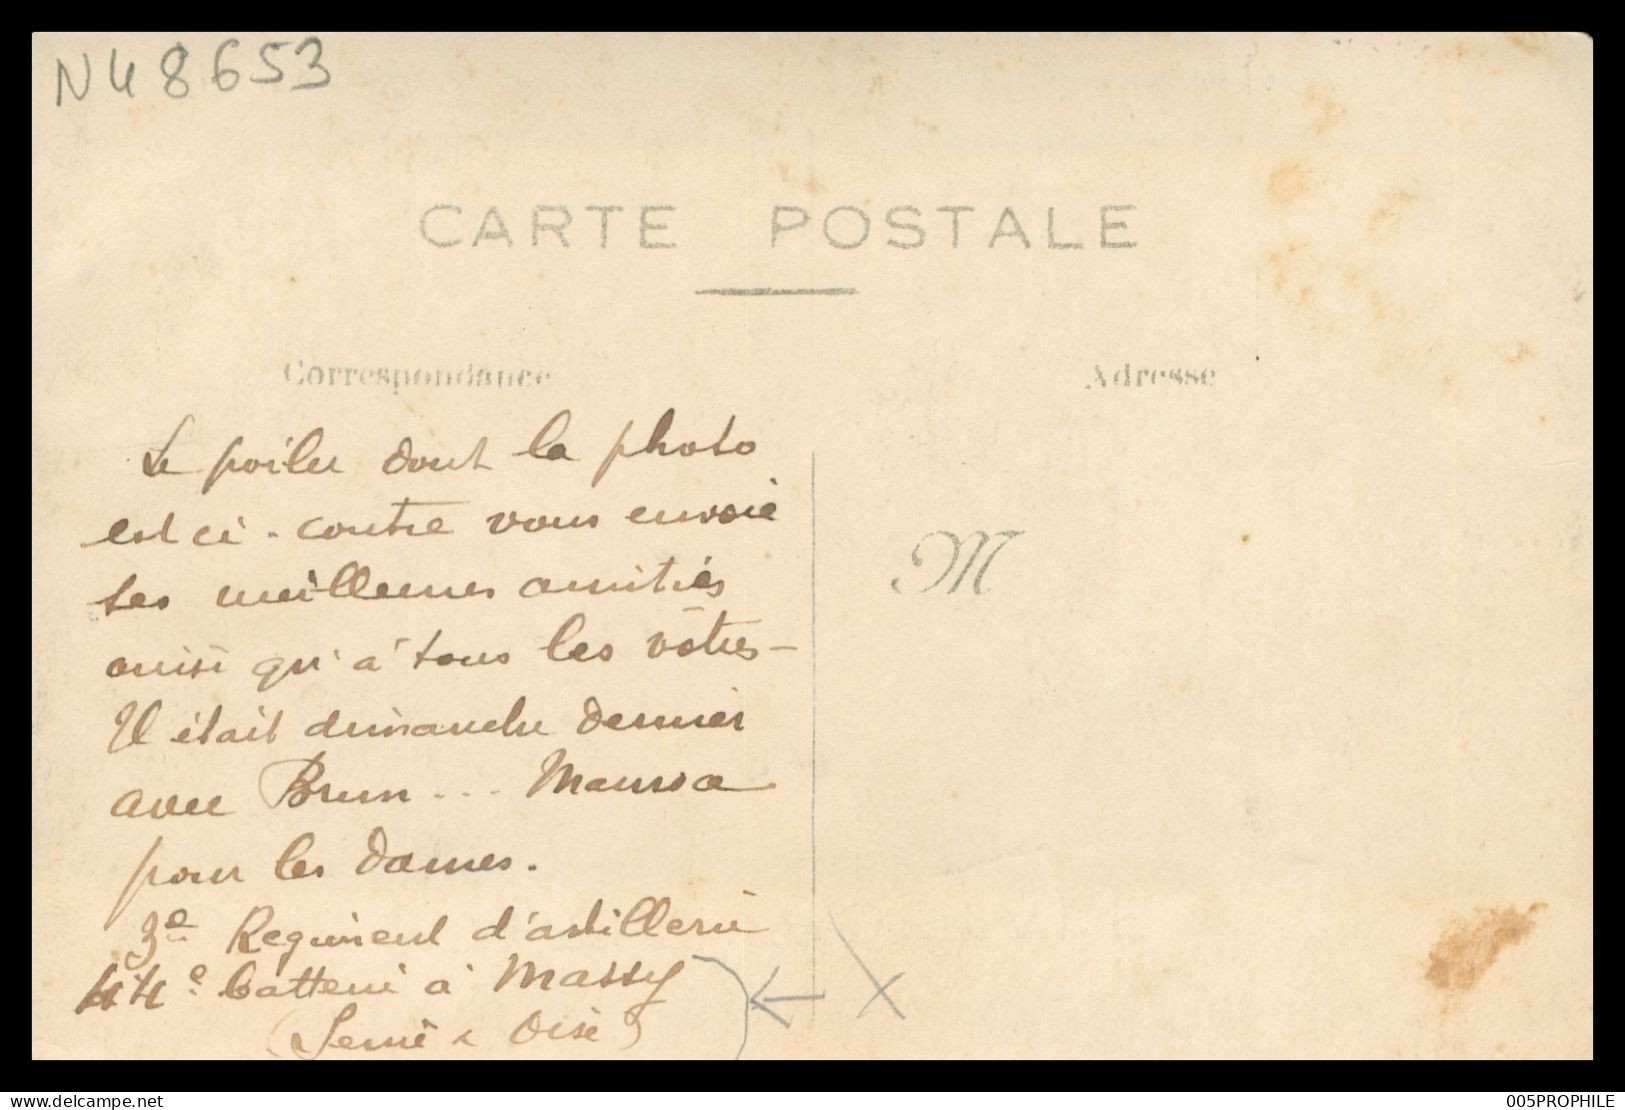 N48653
CARTE POSTALE
Correspondance
Adresse
Le poilu dont la photo
est ci-contre vous envoie
ses meilleures amitiés
ainsi qu'à tous les vôtres -
M
Il était dimanche dernier
avec Brun ...
pour les dames.
3e Regiment d'artillerie
44e batterie à Massy
(Seine & Oise)
X
www.delcampe.net
005PROPHILE